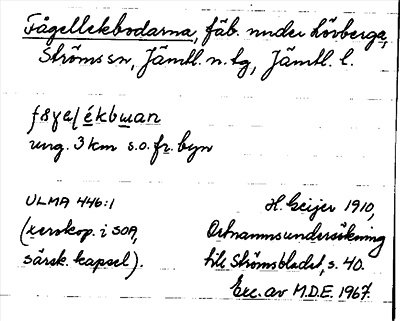 Fågellekbodarna, fäb. under Lövberga,
Ströms sn, Jämtl. n. tg, Jämtl. l.
ékbuan
ung. 3 km s.o. fr. byn
ULMA 446:1
(xerokop. i SOA,
särsk. kapsel).
H. Geijer 1910,
Ortnamnsundersökning
till Strömsbladet, s. 40.
Exc. av M.D.E. 1967.